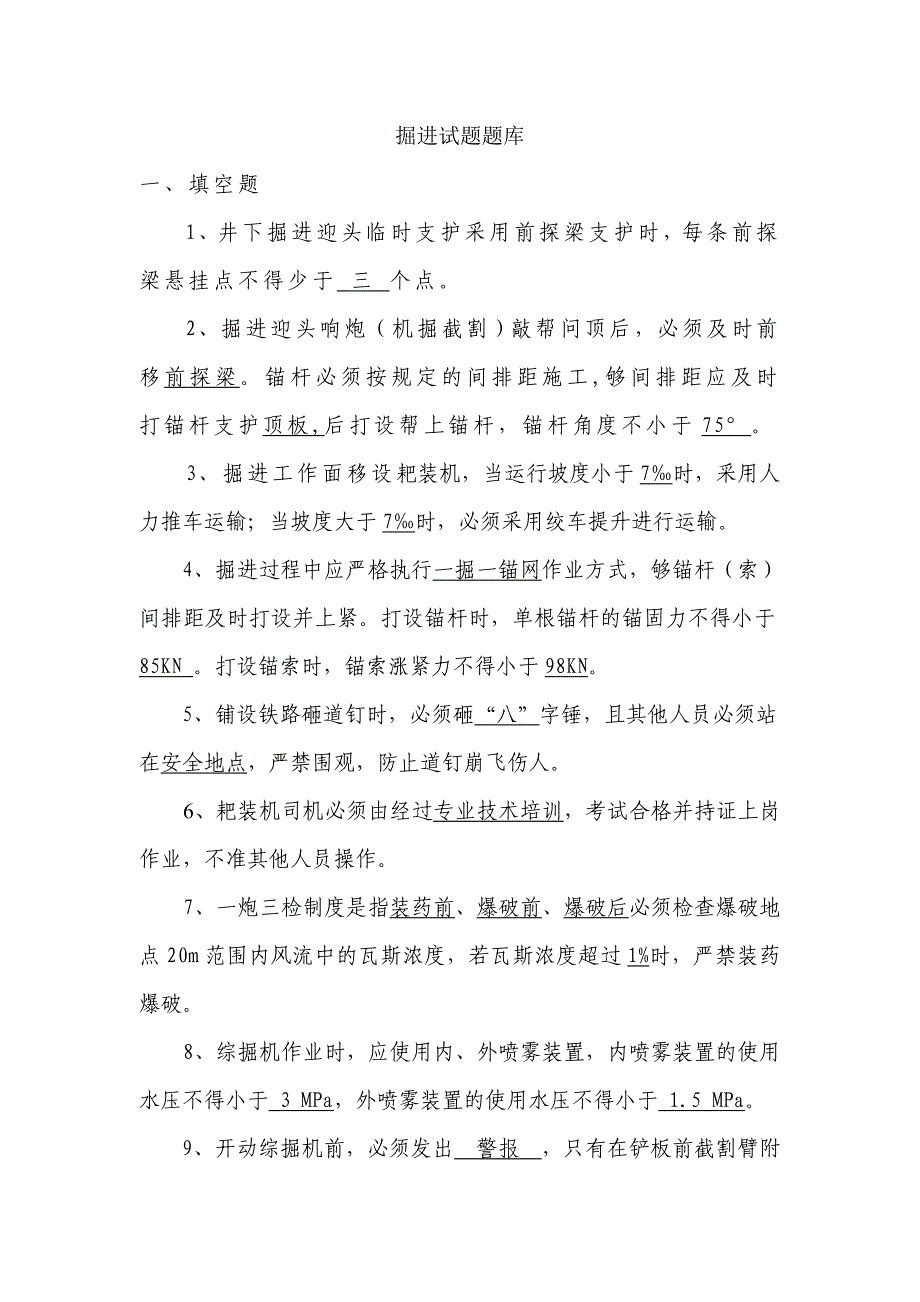 掘进试题题库
一、填空题
1、井下掘进迎头临时支护采用前探梁支护时，每条前探
梁悬挂点不得少于 三 个点。
2、掘进迎头响炮（机掘截割）敲帮问顶后，必须及时前
移前探梁。锚杆必须按规定的间排距施工,够间排距应及时
打锚杆支护顶板,后打设帮上锚杆，锚杆角度不小于 75° 。
3、掘进工作面移设耙装机，当运行坡度小于7‰时，采用人
力推车运输；当坡度大于7‰时，必须采用绞车提升进行运输。
4、掘进过程中应严格执行一掘一锚网作业方式，够锚杆（索）
间排距及时打设并上紧。打设锚杆时，单根锚杆的锚固力不得小于
85KN 。打设锚索时，锚索涨紧力不得小于98KN。
5、铺设铁路砸道钉时，必须砸“八”字锤，且其他人员必须站
在安全地点，严禁围观，防止道钉崩飞伤人。
6、耙装机司机必须由经过专业技术培训，考试合格并持证上岗
作业，不准其他人员操作。
7、一炮三检制度是指装药前、爆破前、爆破后必须检查爆破地
点20m范围内风流中的瓦斯浓度，若瓦斯浓度超过1%时，严禁装药
爆破。
8、综掘机作业时，应使用内、外喷雾装置，内喷雾装置的使用
水压不得小于 3 MPa，外喷雾装置的使用水压不得小于 1.5 MPa。
9、开动综掘机前，必须发出 警报 ，只有在铲板前截割臂附